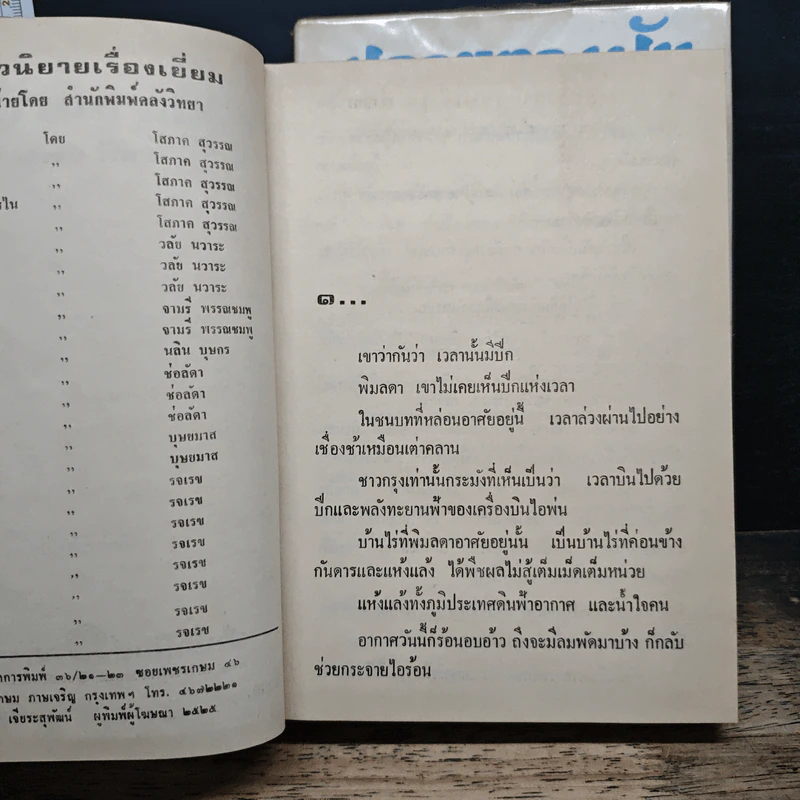 วนิยายเรื่องเยี่ยม
ายโดย สำนักพิมพ์คลังวิทยา
โดย โสภาค สุวรรณ
,, โสภาค สุวรรณ
,, โสภาค สุวรรณ
,, โสภาค สุวรรณ
,, โสภาค สุวรรณ
,, วลัย นวาระ
,, วลัย นวาระ
,, วลัย นวาระ
,, จามรี พรรณชมพู
,, จามรี พรรณชมพู
,, นลิน บุษกร
,, ช่อลัดา
,, ช่อลัดา
,, ช่อลัดา
,, บุษยมาส
,, บุษยมาส
,, รจเรข
,, รจเรข
,, รจเรข
,, รจเรข
,, รจเรข
,, รจเรข
,, รจเรข
,, รจเรข
การพิมพ์ ๓๖/๒๑—๒๓ ซอยเพชรเกษม ๔๖
กษม ภาษเจริญ กรุงเทพฯ โทร. ๔๖๗๒๒๒๑
เจียระสุพัฒน์ ผู้พิมพ์ผู้โฆษณา ๒๕๒๕
๑...
เขาว่ากันว่า เวลานั้นมีปีก
พิมลดา เขาไม่เคยเห็นปีกแห่งเวลา
ในชนบทที่หล่อนอาศัยอยู่นี้ เวลาล่วงผ่านไปอย่าง
เชื่องช้าเหมือนเต่าคลาน
ชาวกรุงเท่านั้นกระมังที่เห็นเป็นว่า เวลาบินไปด้วย
ปีกและพลังทะยานฟ้าของเครื่องบินไอพ่น
บ้านไร่ที่พิมลดาอาศัยอยู่นั้น เป็นบ้านไร่ที่ค่อนข้าง
กันดารและแห้งแล้ง ได้พืชผลไม่สู้เต็มเม็ดเต็มหน่วย
แห้งแล้งทั้งภูมิประเทศดินฟ้าอากาศ และน้ำใจคน
อากาศวันนี้ก็ร้อนอบอ้าว ถึงจะมีลมพัดมาบ้าง ก็กลับ
ช่วยกระจายไอร้อน